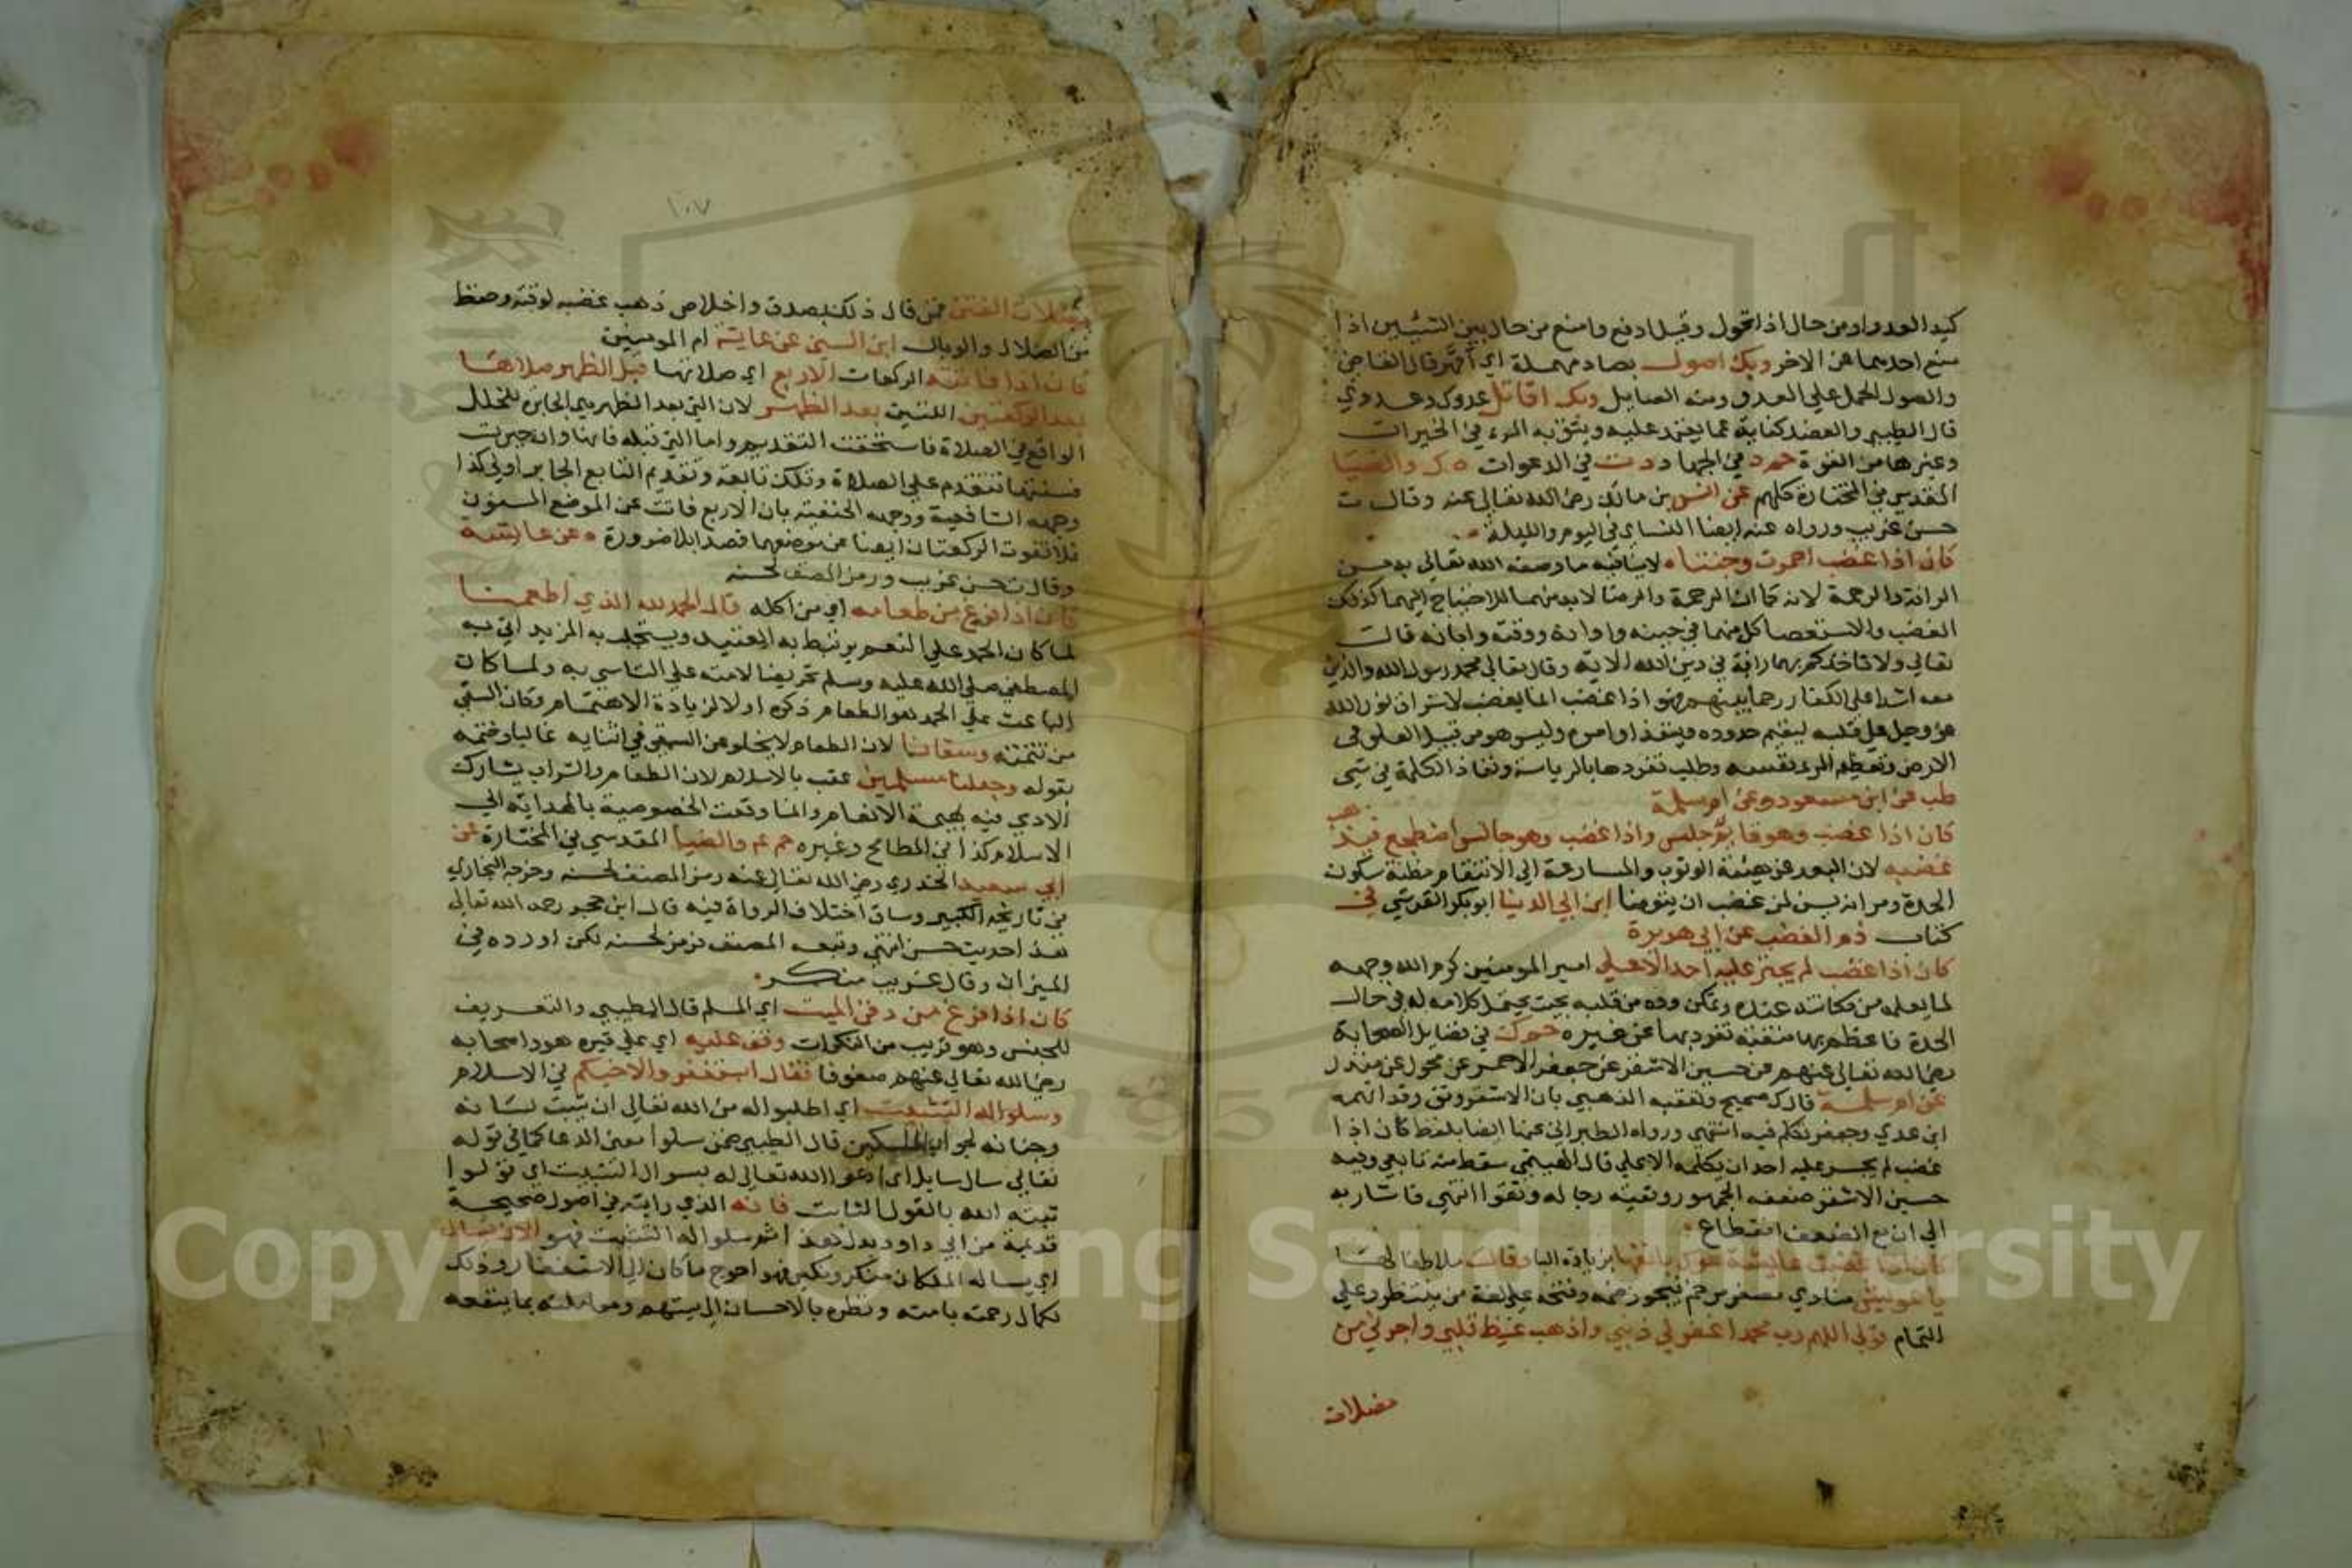 كيد العدو او من حال اذا تحول وقيل ادفع وامنع من حال بين الشيئين اذا
منع احدهما عن الاخر وبك اصول بصاد مهملة اي اقهر قال القاضي
والصول الحمل علي العدو ومنه الصايل وبك اقاتل عدوك وعدوي
قال الطيبي والعضد كناية عما يعتمد عليه ويثق به المرء في الخيرات
وغيرها من القوة حم د في الجهاد د ت في الدعوات ه ك والضيا
المقدسي في المختارة كلهم عن انس بن مالك رضي الله تعالي عنه وقال ت
حسن غريب ورواه عنه ايضا النساي في اليوم والليلة
كان اذا غضب احمرت وجنتاه لا ينافيه ما وصفه الله تعالي به من
الرافة والرحمة لانه كما ان الرحمة والرضا لابد منهما للاحتياج اليهما كذلك
الغضب والاستقصا كل منهما في حينه واوانه ووقته وابانه قال
تعالي ولا تاخذكم بهما رافة في دين الله الاية وقال تعالي محمد رسول الله والذين
معه اشدا علي الكفار رحما بينهم فهو اذا غضب انما يغضب لاشراق نور الله
عز وجل علي قلبه ليقيم حدوده وينفذ اوامره وليس هو من قبيل العلو في
الارض وتعظيم المرء نفسه وطلب تفردها بالرياسة ونفاذ الكلمة في شي
طب عن ابن مسعود وعن ام سلمة
كان اذا غضب وهو قايم جلس واذا غضب وهو جالس اضطجع فيذهب
غضبه لان البعد عن هيئة الوثوب والمسارعة الي الانتقام مظنة سكون
الحدة ومر انه يسن لمن غضب ان يتوضا ابن ابي الدنيا ابو بكر القرشي في
كتاب ذم الغضب عن ابي هريرة
كان اذا غضب لم يجتر عليه احد الا علي امير المومنين كرم الله وجهه
لما يعلمه من مكانته عنده وتمكن وده من قلبه بحيث يحتمل كلامه له في حال
الحدة فاعظم بها منقبة تفرد بها عن غيره حل ك في فضايل الصحابة
رضي الله تعالي عنهم عن حسين الاشقر عن جعفر الاحمر عن مخول عن منذر
عن ام سلمة قال ك صحيح وتعقبه الذهبي بان الاشقر وثق وقد اتهمه
ابن عدي وجعفر تكلم فيه انتهي ورواه الطبراني عنها ايضا بلفظ كان اذا
غضب لم يجسر عليه احد ان يكلمه الا علي قال الهيتمي سقط منه تابعي وفيه
حسين الاشقر ضعفه الجمهور وبقية رجاله وثقوا انتهي فاشار به
الي ان مع الضعف انقطاع
كان اذا غضبت عايشة عرك بانفها بزيادة البا وقال ملاطفا لها
يا عويش منادي مصغر مرخم فيجوز ضمه وفتحه علي لغة من ينتظر وعلي
التمام قولي اللهم رب محمد اغفر لي ذنبي واذهب غيظ قلبي واجرني من
مضلات
١٠٧
مضلات الفتن فمن قال ذلك بصدق واخلاص ذهب غضبه لوقته وحفظ
من الضلال والوبال ابن السني عن عايشة ام المومنين
كان اذا فاتته الركعات الاربع اي صلاتها قبل الظهر صلاها
بعد الركعتين اللتين بعد الظهر لان التي بعد الظهر هي الجابر للخلل
الواقع في الصلاة فاستحقت التقديم واما التي قبله فانها وان جبرت
فسنتها تتقدم علي الصلاة وتلك تابعة وتقديم التابع الجابر اولي كذا
وجهه الشافعية ووجهه الحنفية بان الاربع فاتت عن الموضع المسنون
فلا تفوت الركعتان ايضا عن موضعهما قصدا بلا ضرورة ه عن عايشة
وقال ت حسن غريب ورمز المصنف لحسنه
كان اذا فرغ من طعامه اي من اكله قال الحمد لله الذي اطعمنا
لما كان الحمد علي النعم يرتبط به العتيد ويستجلب به المزيد اتي به
المصطفي صلي الله عليه وسلم تحريضا لامته علي التاسي به ولما كان
الباعث علي الحمد هو الطعام ذكره اولا لزيادة الاهتمام وكان السقي
من تتمته وسقانا لان الطعام لا يخلو عن السقي في اثنايه غالبا وختمه
بقوله وجعلنا مسلمين عقب بالاسلام لان الطعام والشراب يشارك
الادمي فيه بهيمة الانعام وانما وقعت الخصوصية بالهداية الي
الاسلام كذا في المطامح وغيره حم عم والضيا المقدسي في المختارة عن
ابي سعيد الخدري رضي الله تعالي عنه رمز المصنف لحسنه وخرجه البخاري
في تاريخه الكبير وساق اختلاف الرواة فيه قال ابن حجر رحمه الله تعالي
هذا حديث حسن انتهي وتبعه المصنف فرمز لحسنه لكن اورده في
الميزان وقال غريب منكر
كان اذا فرغ من دفن الميت اي المسلم قال الطيبي والتعريف
للجنس وهو قريب من النكرات وقف عليه اي علي قبره هو واصحابه
رضي الله تعالي عنهم صفوفا فقال استغفروا لاخيكم في الاسلام
وسلوا له التثبيت اي اطلبوا له من الله تعالي ان يثبت لسانه
وجنانه لجواب الملكين قال الطيبي ضمن سلوا معني الدعا كما في قوله
تعالي سال سايل اي ادعوا الله تعالي له بسوال التثبيت اي قولوا
ثبته الله بالقول الثابت فانه الذي رايته في اصول صحيحة
قديمة من ابي داود بدل هذا ثم سلوا له التثبيت فهو الان يسال
اي يساله الملكان منكر ونكير فهو احوج ما كان الي الاستغفار وذلك
لكمال رحمته بامته ونظره بالاحسان الي ميتهم ومعاملته بما ينفعه
Copyright © King Saud University
1957